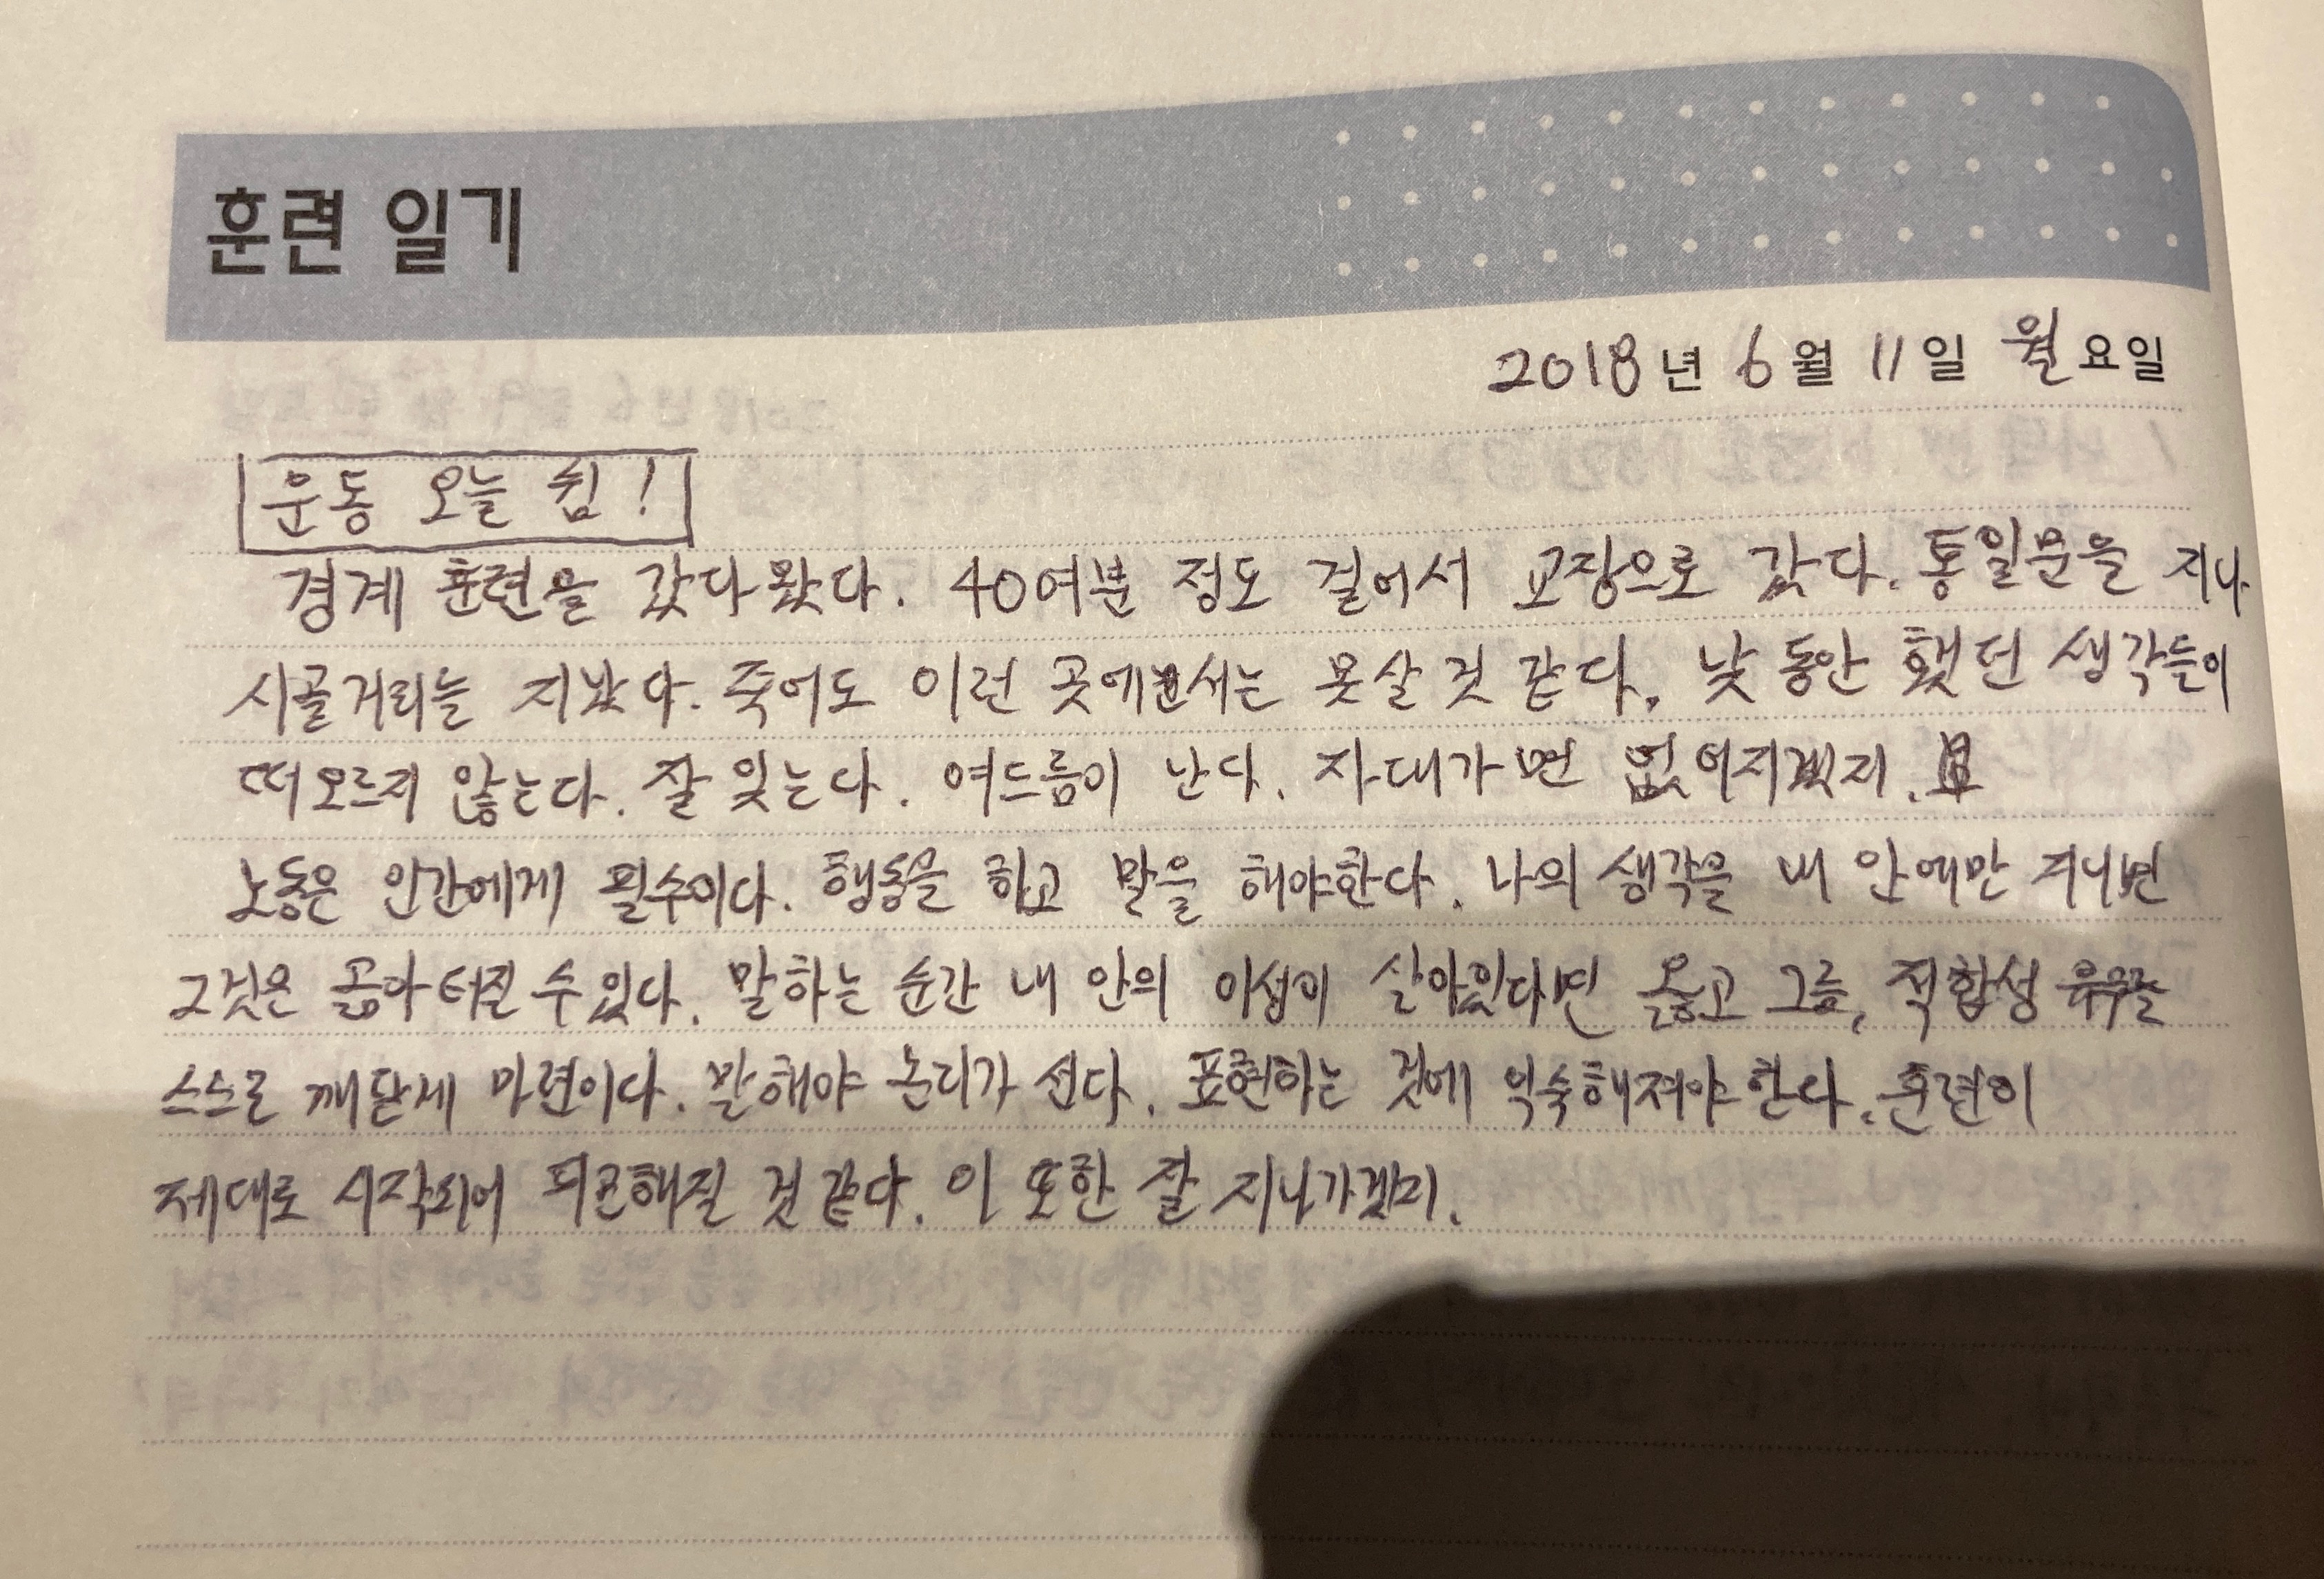 훈련 일기
2018년 6월 11일 월요일
운동 오늘 쉼!
경계 훈련을 갔다왔다. 40여분 정도 걸어서 교장으로 갔다. 통일문을 지나
시골거리를 지났다. 죽어도 이런 곳에서는 못살 것 같다. 낮 동안 했던 생각들이
떠오르지 않는다. 잘 잊는다. 여드름이 난다. 자대가면 없어지겠지.
노동은 인간에게 필수이다. 행동을 하고 말을 해야한다. 나의 생각을 내 안에만 지니면
그것은 곪아 터질 수 있다. 말하는 순간 내 안의 이성이 살아있다면 옳고 그름, 적합성 유무를
스스로 깨닫게 마련이다. 말해야 논리가 선다. 표현하는 것에 익숙해져야 한다. 훈련이
제대로 시작되어 피곤해질 것 같다. 이 또한 잘 지나가겠지.